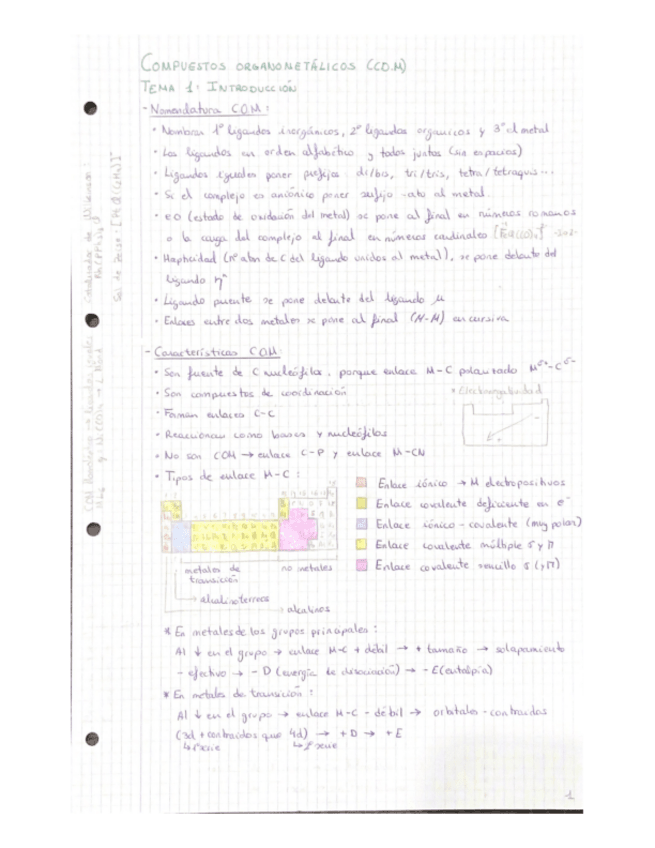 COMPUESTOS ORGANOMETÁLICOS (COM)
TEMA 1: INTRODUCCIÓN
- Nomenclatura COM:
• Nombrar 1º ligandos inorgánicos, 2º ligandos orgánicos y 3º el metal
• Los ligandos en orden alfabético y todos juntos (sin espacios)
• Ligandos iguales poner prefijos di/bis, tri/tris, tetra/tetraquis...
• Si el complejo es aniónico poner sufijo -ato al metal.
• EO (estado de oxidación del metal) se pone al final en números romanos
o la carga del complejo al final en números cardinales
• Hapticidad (nº atm de C del ligando unidos al metal), se pone delante del
ligando ηⁿ
• Ligando puente se pone delante del ligando μ
• Enlaces entre dos metales se pone al final (M-M) en cursiva
- Características COM:
• Son fuente de C nucleófilos, porque enlace M-C polarizado Mδ+-Cδ-
• Son compuestos de coordinación
* Electronegatividad
• Forman enlaces C-C
• Reaccionan como bases y nucleófilos
• No son COM → enlace C-P y enlace M-CN
• Tipos de enlace M-C:
Enlace iónico → M electropositivos
Enlace covalente deficiente en e⁻
Enlace iónico-covalente (muy polar)
Enlace covalente múltiple σ y π
Enlace covalente sencillo σ (y π)
metales de transición
no metales
→ alcalinoterreos
→ alcalinos
* En metales de los grupos principales:
Al ↓ en el grupo → enlace M-C + débil → + tamaño → solapamiento
- efectivo → - D (energía de disociación) → - E (entalpia)
* En metales de transición:
Al ↓ en el grupo → enlace M-C - débil → orbitales - contraidos
(3d + contraidos que 4d) → + D → + E
↳ 1ª serie ↳ 2ª serie
1